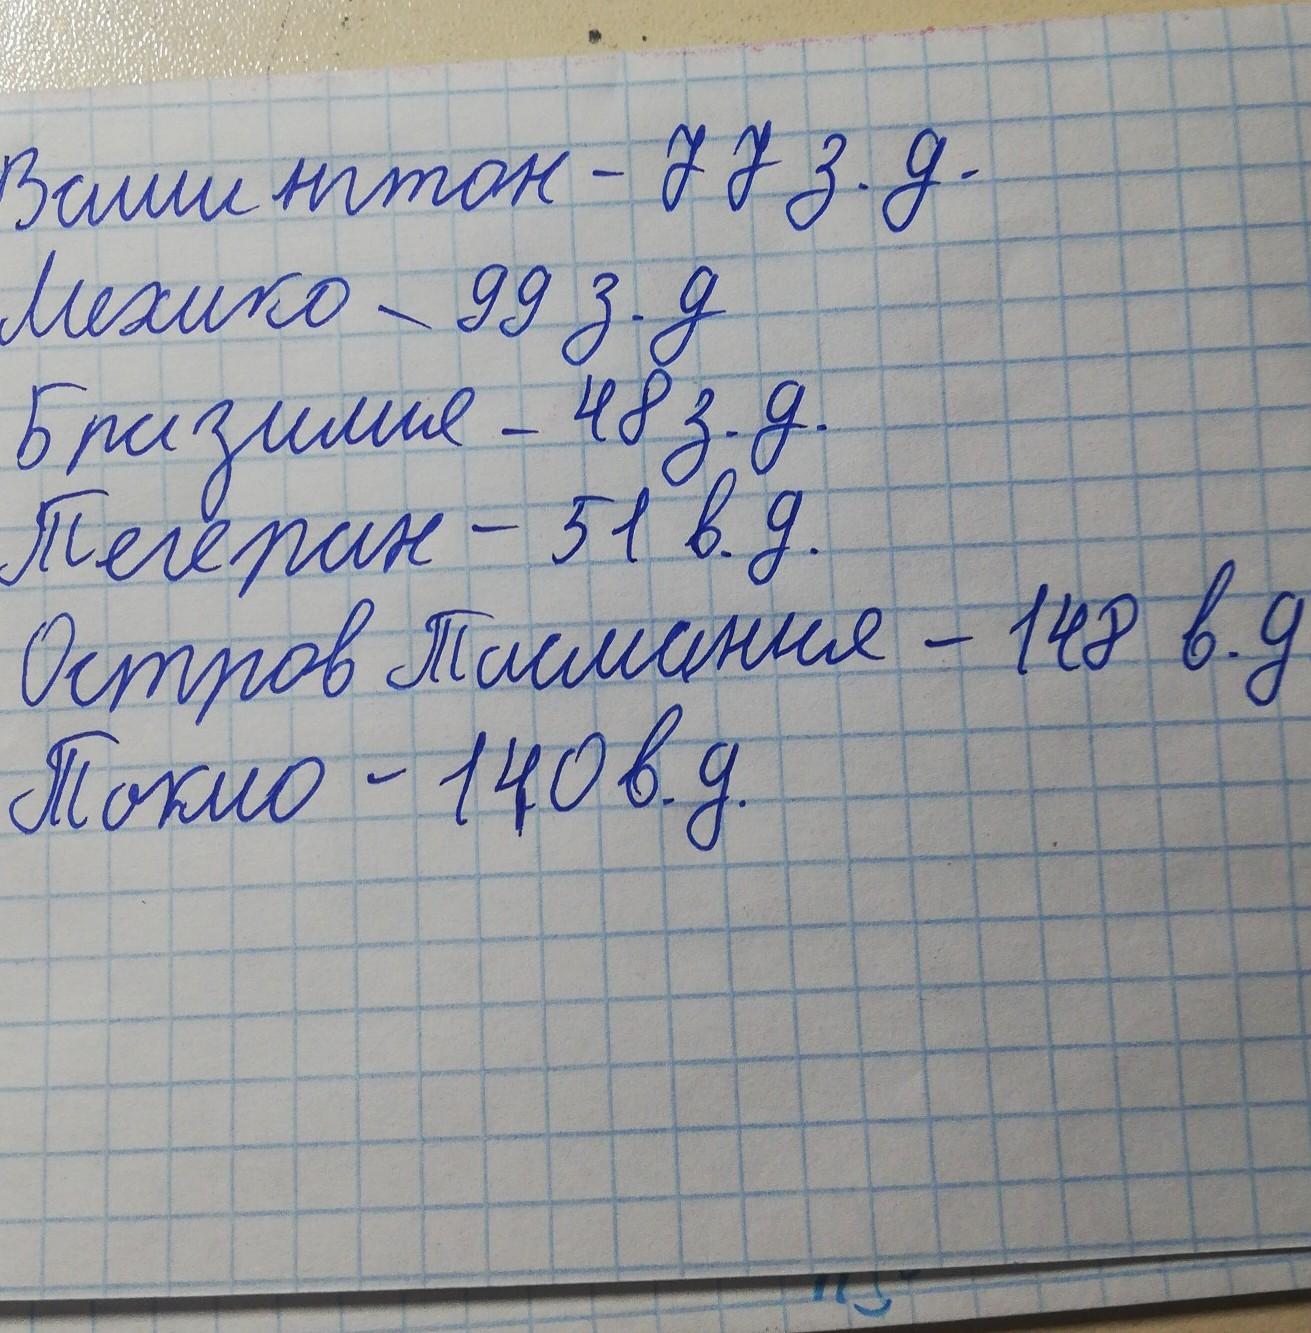 Вашингтон - 77 з. д.
Мехико - 99 з. д
Бразилия - 48 з. д.
Тегеран - 51 в. д.
Остров Тасмания - 148 в. д
Токио - 140 в. д.